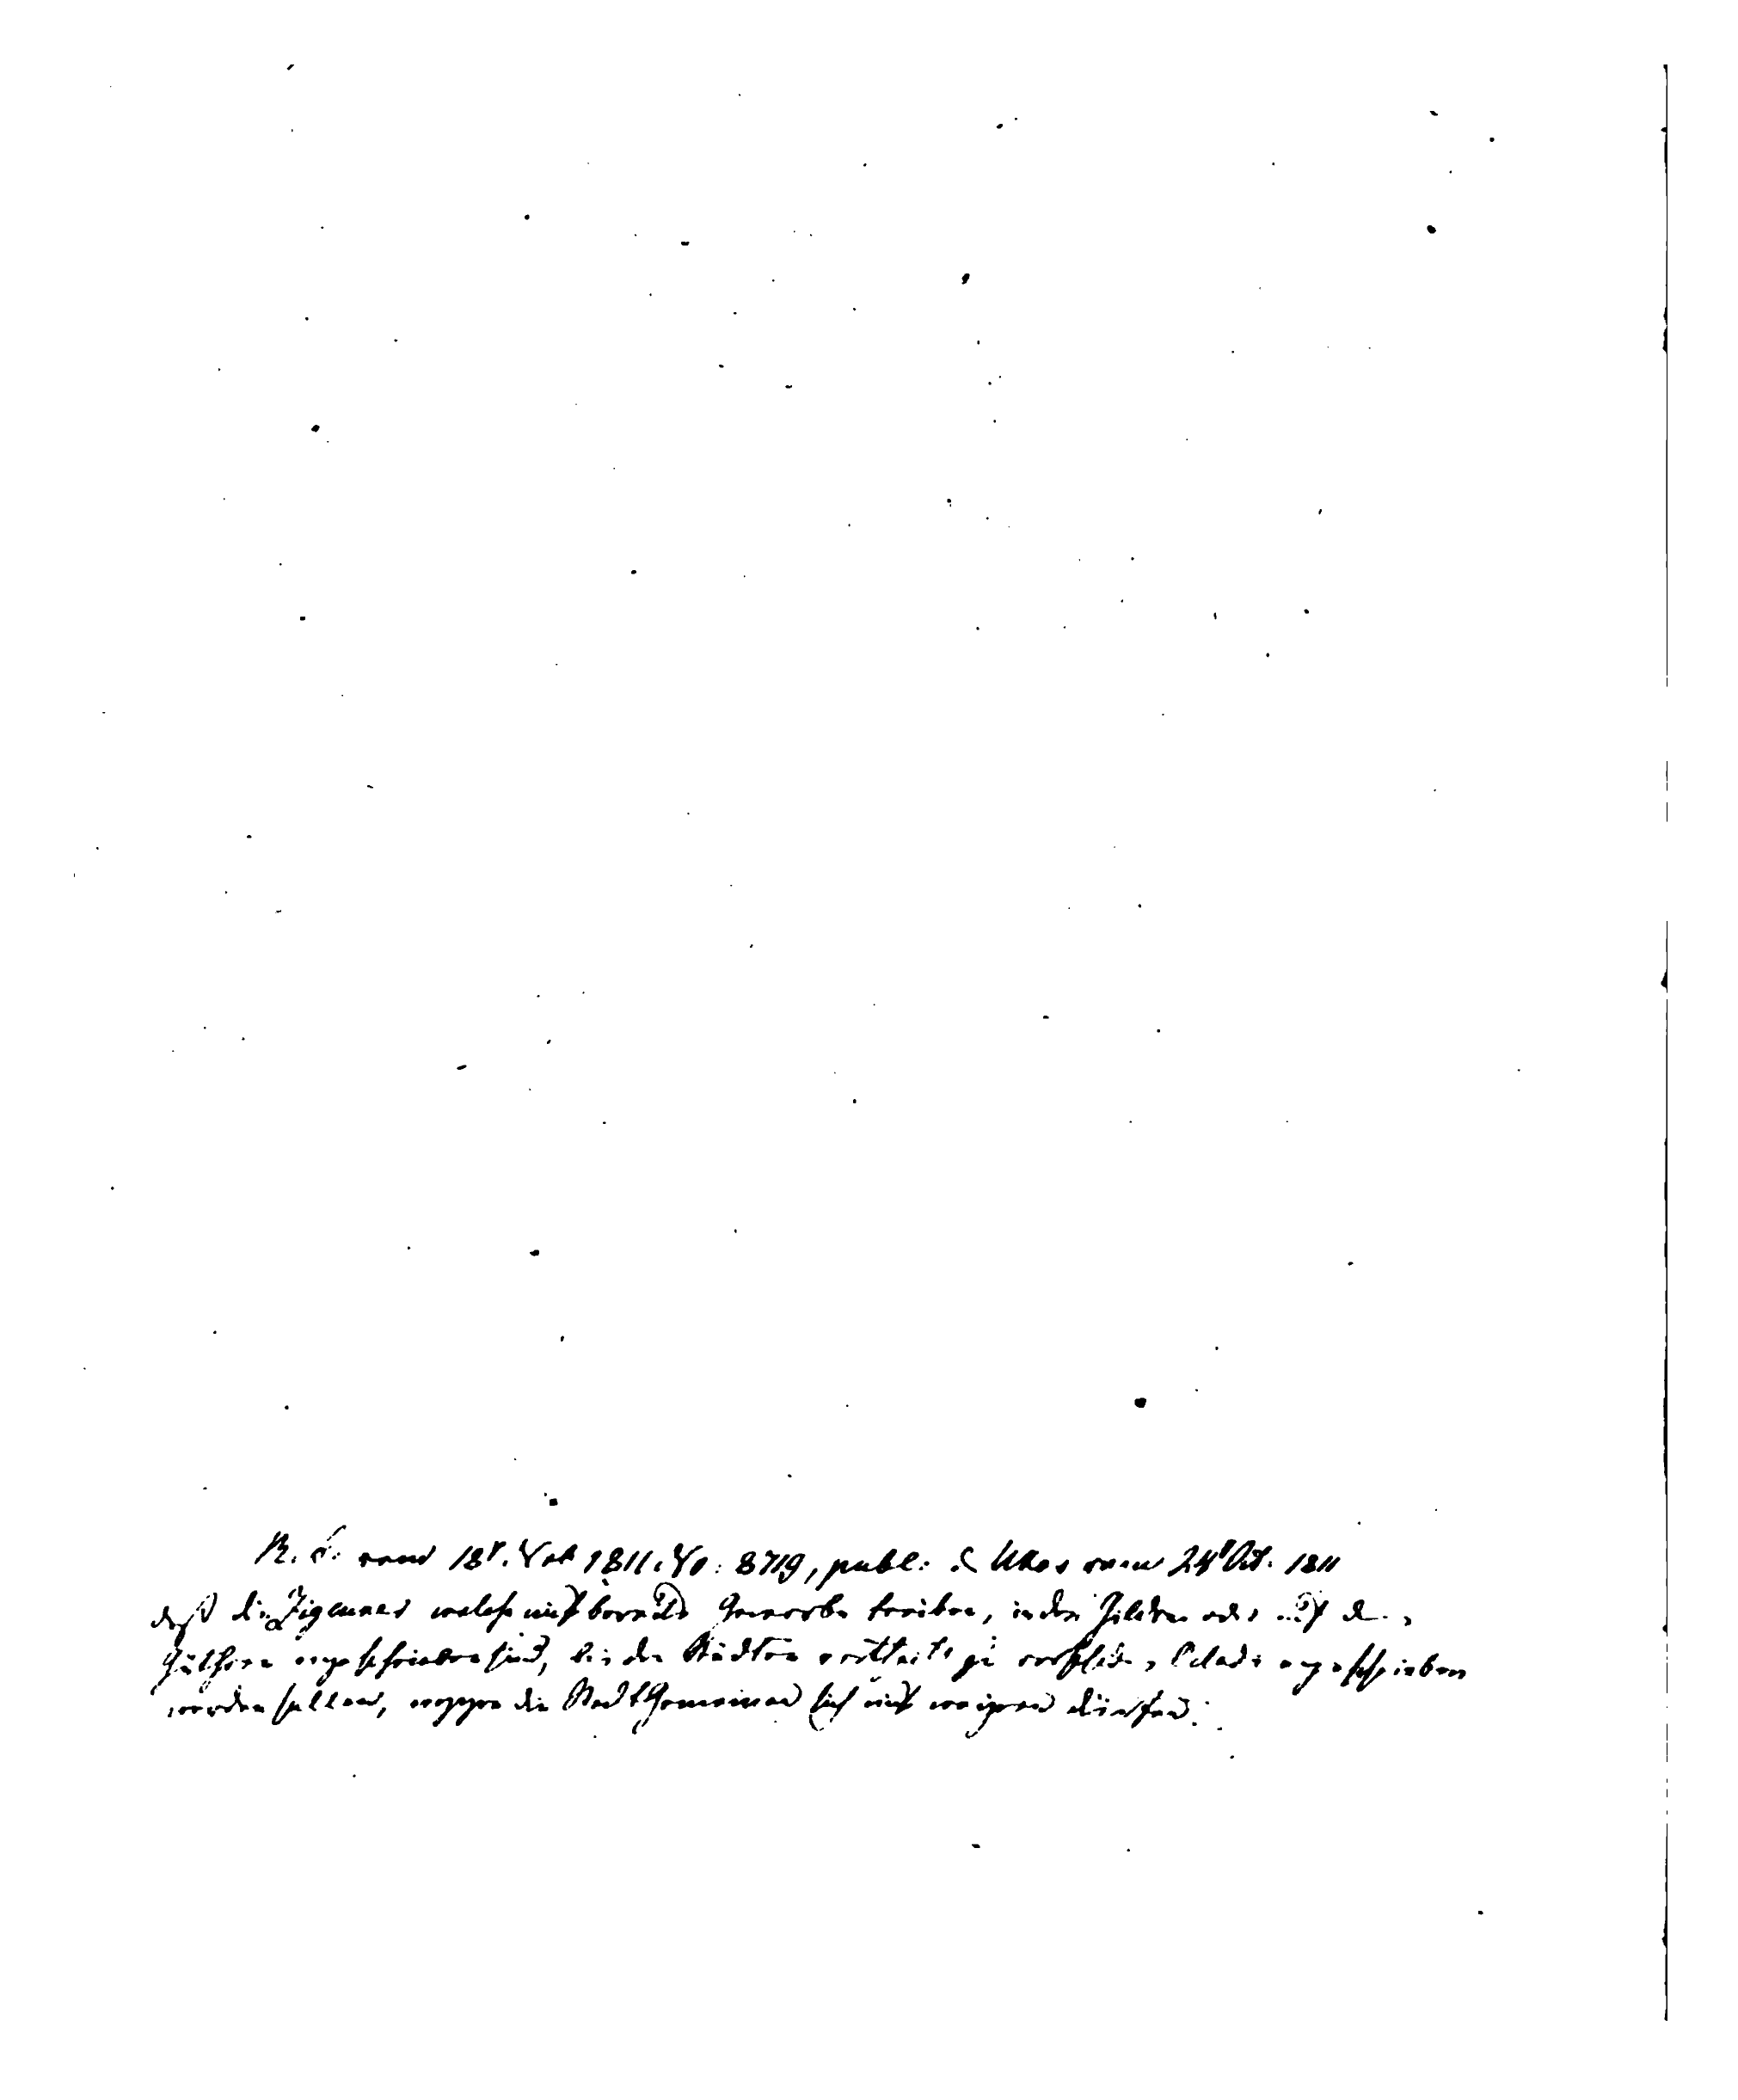 R. B. vom 18t. Oct 1811. No: 8719, publ: Ukas vom 24t Oct. 1811
daß die Zigeuner welche nicht bereits Gewerbe treiben, in den Gilden oder auf den
Güthern angeschrieben sind, bei den Städten vertheilt zu angeschrieben
werden sollen, wogegen die Stadt Gemeinen sich nicht weigern dürfen.